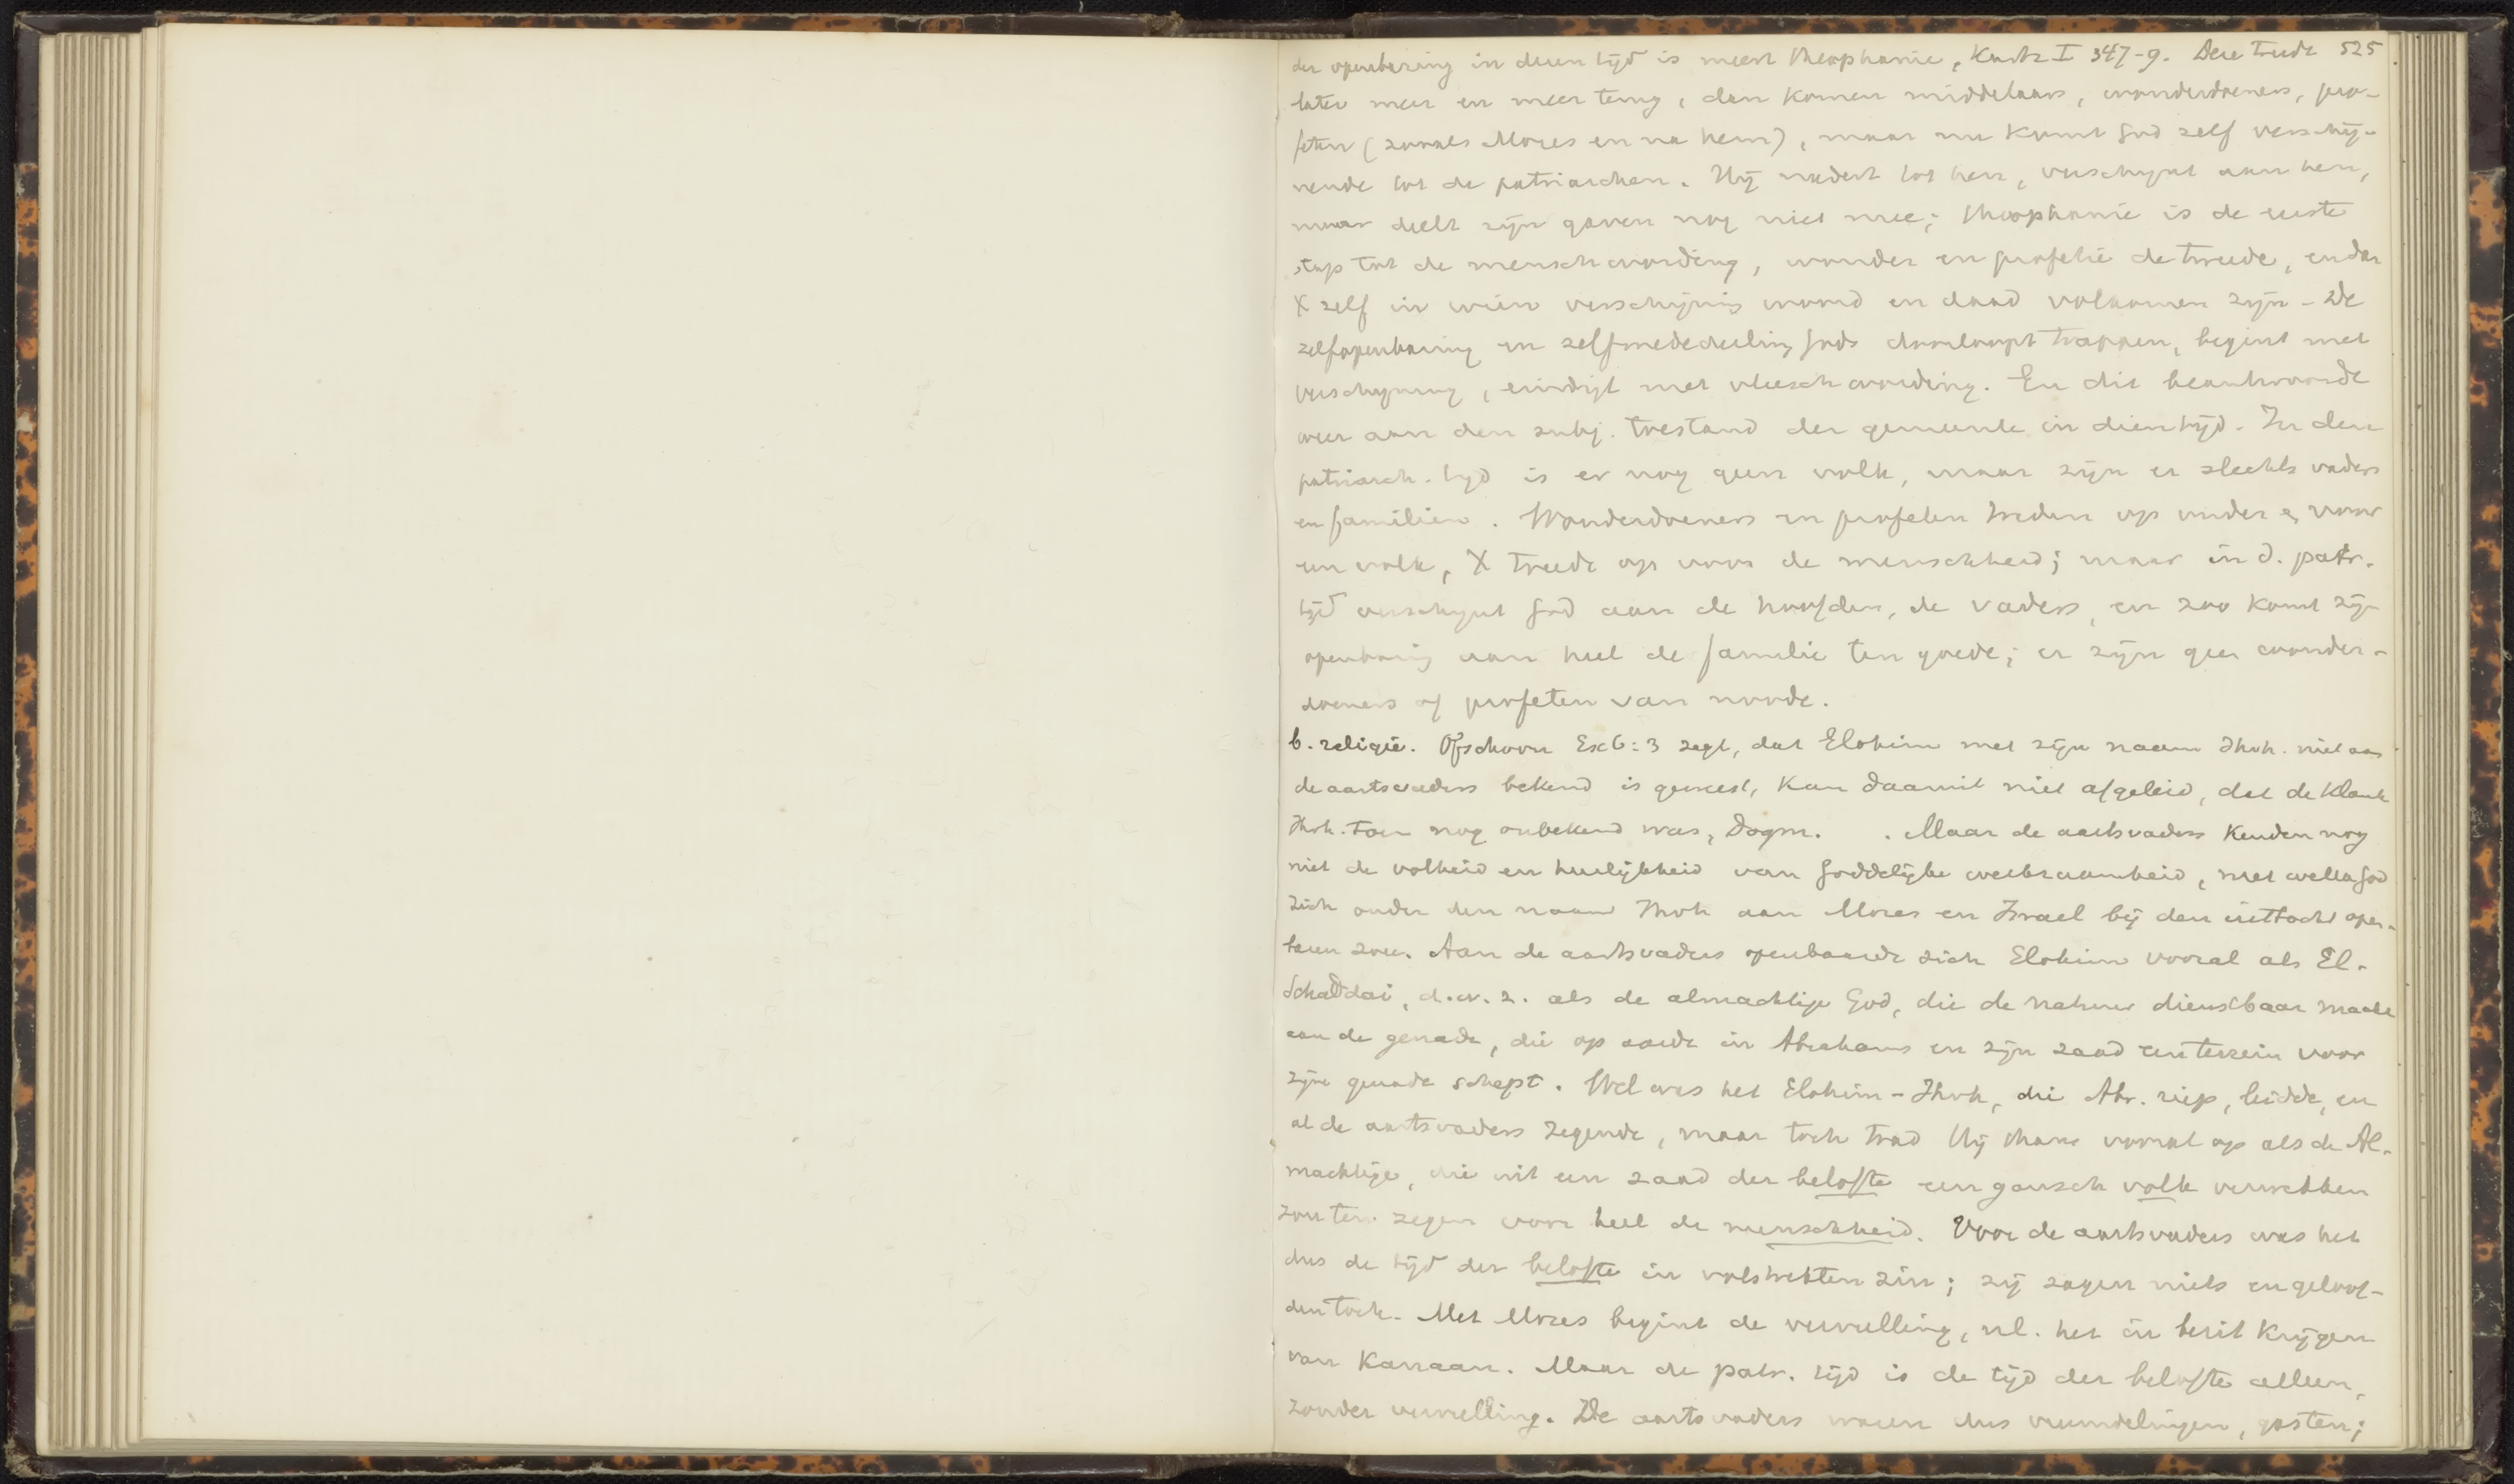 der openbaring in dezen tijd is meest theophanie, Kurtz I 347-9. Deze treedt 525
later meer en meer terug, dan komen middelaars, wonderdoeners, pro-
feten (zooals Mozes en na hem), maar nu komt God zelf verschij-
nende tot de patriarchen. Hij nadert tot hen, verschijnt aan hen,
maar deelt zijn gaven nog niet mee; theophanie is de eerste
stap tot de menschwording, wonder en profetie de tweede, en dan
X zelf in wiens verschijning woord en daad volkomen zijn - De
zelfopenbaring en zelfmededeeling Gods doorloopt trappen, begint met
verschijning, eindigt met vleeschwording. En dit beantwoordde
weer aan den subj. toestand der gemeente in dien tijd. In den
patriarch. tijd is er nog geen volk, maar zijn er slechts vaders
en familien. Wonderdoeners en profeten treden op onder & voor
een volk, X treedt op voor de menschheid; maar in d. patr.
tijd verschijnt God aan de hoofden, de vaders, en zoo komt zijn
openbaring aan heel de familie ten goede; er zijn geen wonder-
doeners of profeten van noode.
b. religie. Ofschoon Ex 6:3 zegt, dat Elohim met zijn naam Jhvh. niet aan
de aartsvaders bekend is geweest, kan daaruit niet afgeleid, dat de klank
Jhvh. toen nog onbekend was, Dogm. . Maar de aartsvaders kenden nog
niet de volheid en heerlijkheid van Goddelijke werkzaamheid, met welke God
zich onder den naam Jhvh aan Mozes en Israel bij den uittocht open-
baren zou. Aan de aartsvaders openbaarde zich Elohim vooral als El-
Schaddai, d.w.z. als de almachtige God, die de natuur dienstbaar maakt
aan de genade, die op aarde in Abraham en zijn zaad een terrein voor
zijne genade schept. Wel was het Elohim-Jhvh, die Abr. riep, leidde, en
al de aartsvaders zegende, maar toch trad Hij thans vooral op als de Al-
machtige, die uit een zaad der belofte een gansch volk verwekken
zou ten zegen voor heel de menschheid. Voor de aartsvaders was het
dus de tijd der belofte in volstrekten zin; zij zagen niets en geloof-
den toch. Met Mozes begint de vervulling, nl. het in bezit krijgen
van Kanaan. Maar de patr. tijd is de tijd der belofte alleen,
zonder vervulling. De aartsvaders waren dus vreemdelingen, gasten;